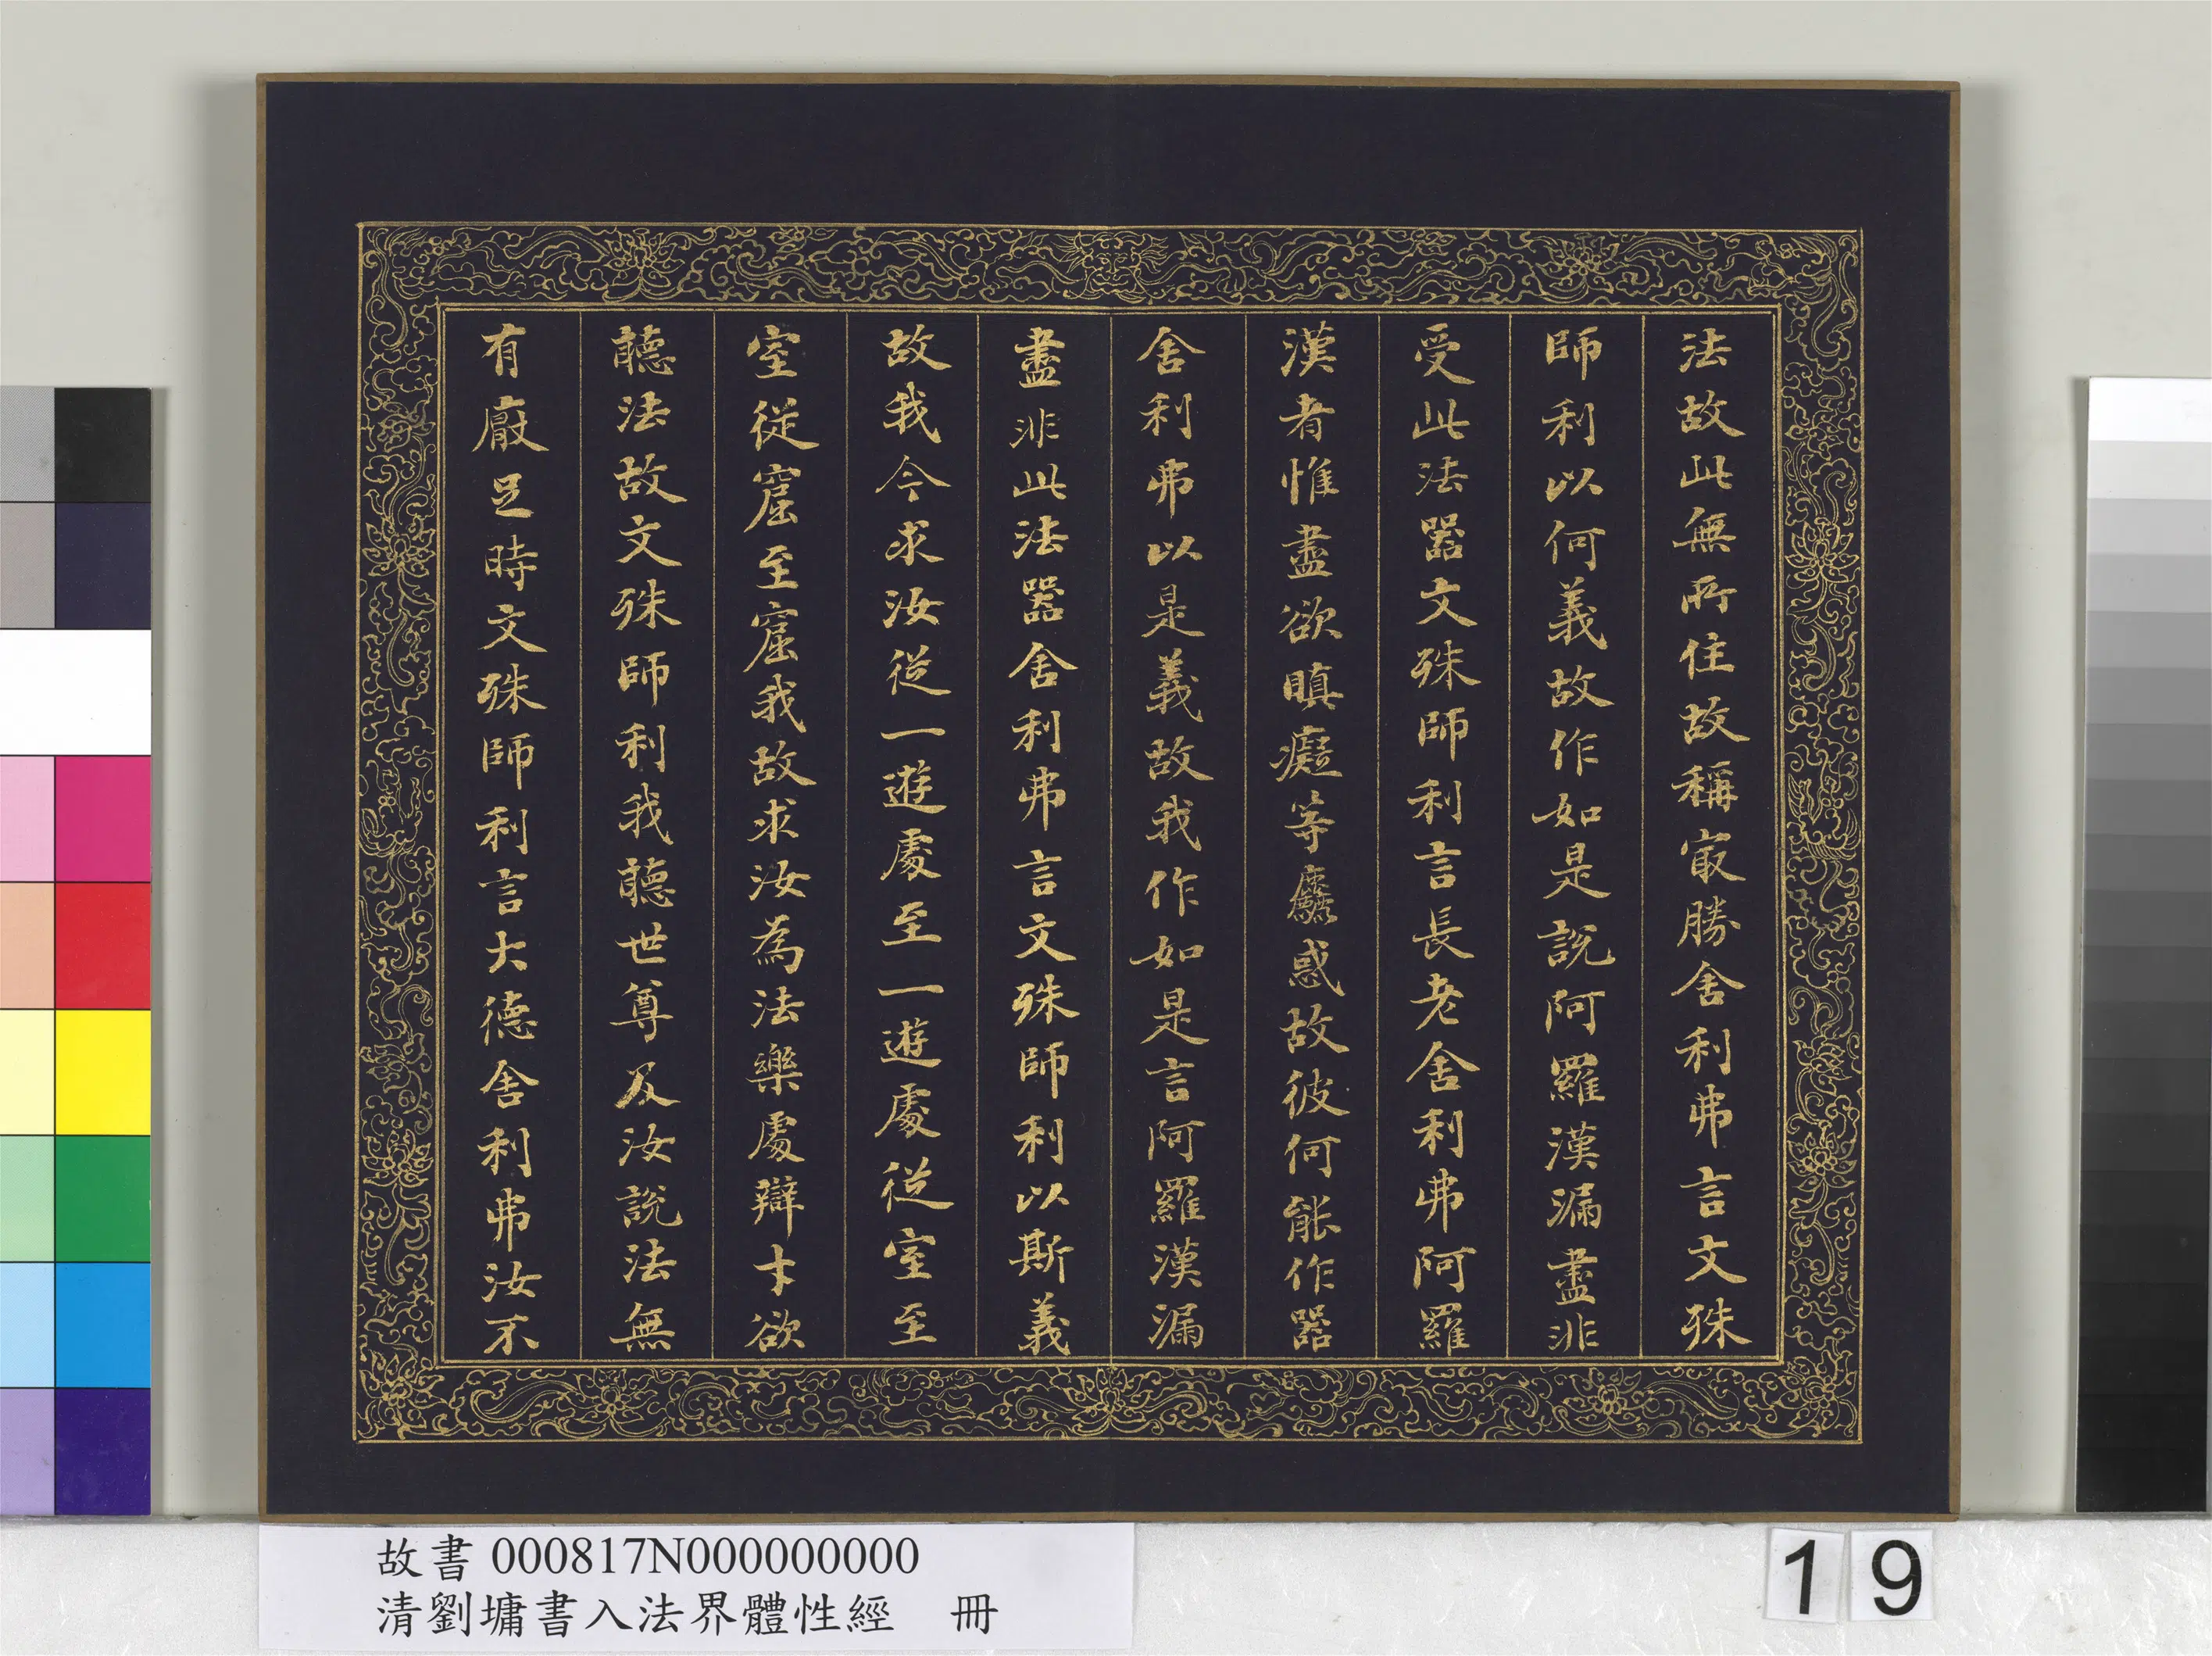 法故此無所住故稱㝡勝舍利弗言文殊
師利以何義故作如是說阿羅漢漏盡非
受此法器文殊師利言長老舍利弗阿羅
漢者惟盡欲瞋癡等麤惑故彼何能作器
舍利弗以是義故我作如是言阿羅漢漏
盡非此法器舍利弗言文殊師利以斯義
故我今求汝從一遊處至一遊處從室至
室從窟至窟我故求汝為法樂處辯才欲
聽法故文殊師利我聽世尊及汝說法無
有厭足時文殊師利言大德舍利弗汝不
故書 000817N000000000
清劉墉書入法界體性經 冊
19